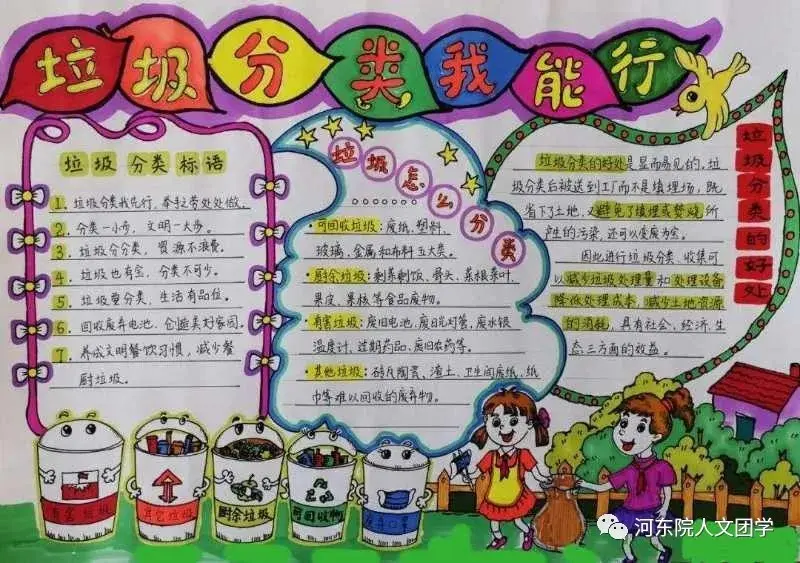 垃圾分类我能行
垃圾分类标语
1. 垃圾分类我先行，举手之劳处处做。
2. 分类一小步，文明一大步。
3. 垃圾分分类，资源不浪费。
4. 垃圾也有家，分类不可少。
5. 垃圾要分类，生活有品位。
6. 回收废弃电池，创造美好家园。
7. 养成文明餐饮习惯，减少餐
厨垃圾。
垃圾怎么分类
······
·可回收垃圾：废纸，塑料，
玻璃，金属和布料五大类。
·厨余垃圾：剩菜剩饭、骨头、菜根菜叶、
果皮、果核等食品废物。
·有害垃圾：废旧电池，废日光灯管，废水银
温度计，过期药品，废旧农药等。
·其他垃圾：砖瓦陶瓷、渣土、卫生间废纸，纸
巾等难以回收的废弃物。
垃圾分类的好处
垃圾分类的好处是显而易见的，垃
圾分类后被送到工厂而不是填埋场，既
省下了土地，又避免了填埋或焚烧所
产生的污染，还可以变废为宝。
因此进行垃圾分类，收集可
以减少垃圾处理量和处理设备
降低处理成本，减少土地资源
的消耗，具有社会、经济，生
态三方面的效益。
有害垃圾
其它垃圾
厨余垃圾
可回收物
河东院人文团学